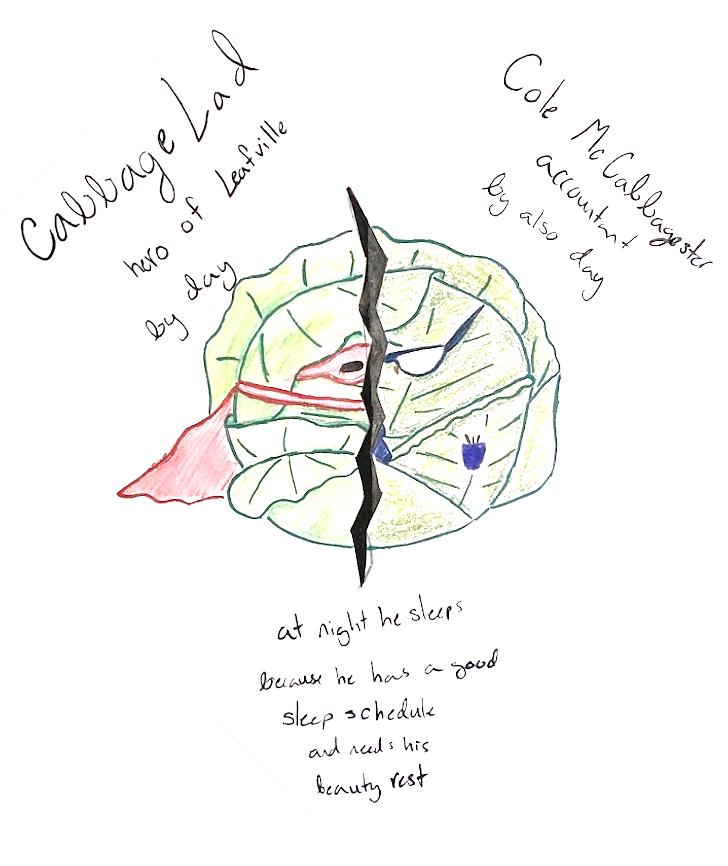 Cabbage Lad
hero of Leafville
by day
Cole McCabbagester
accountant
by also day
at night he sleeps
because he has a good
sleep schedule
and needs his
beauty rest